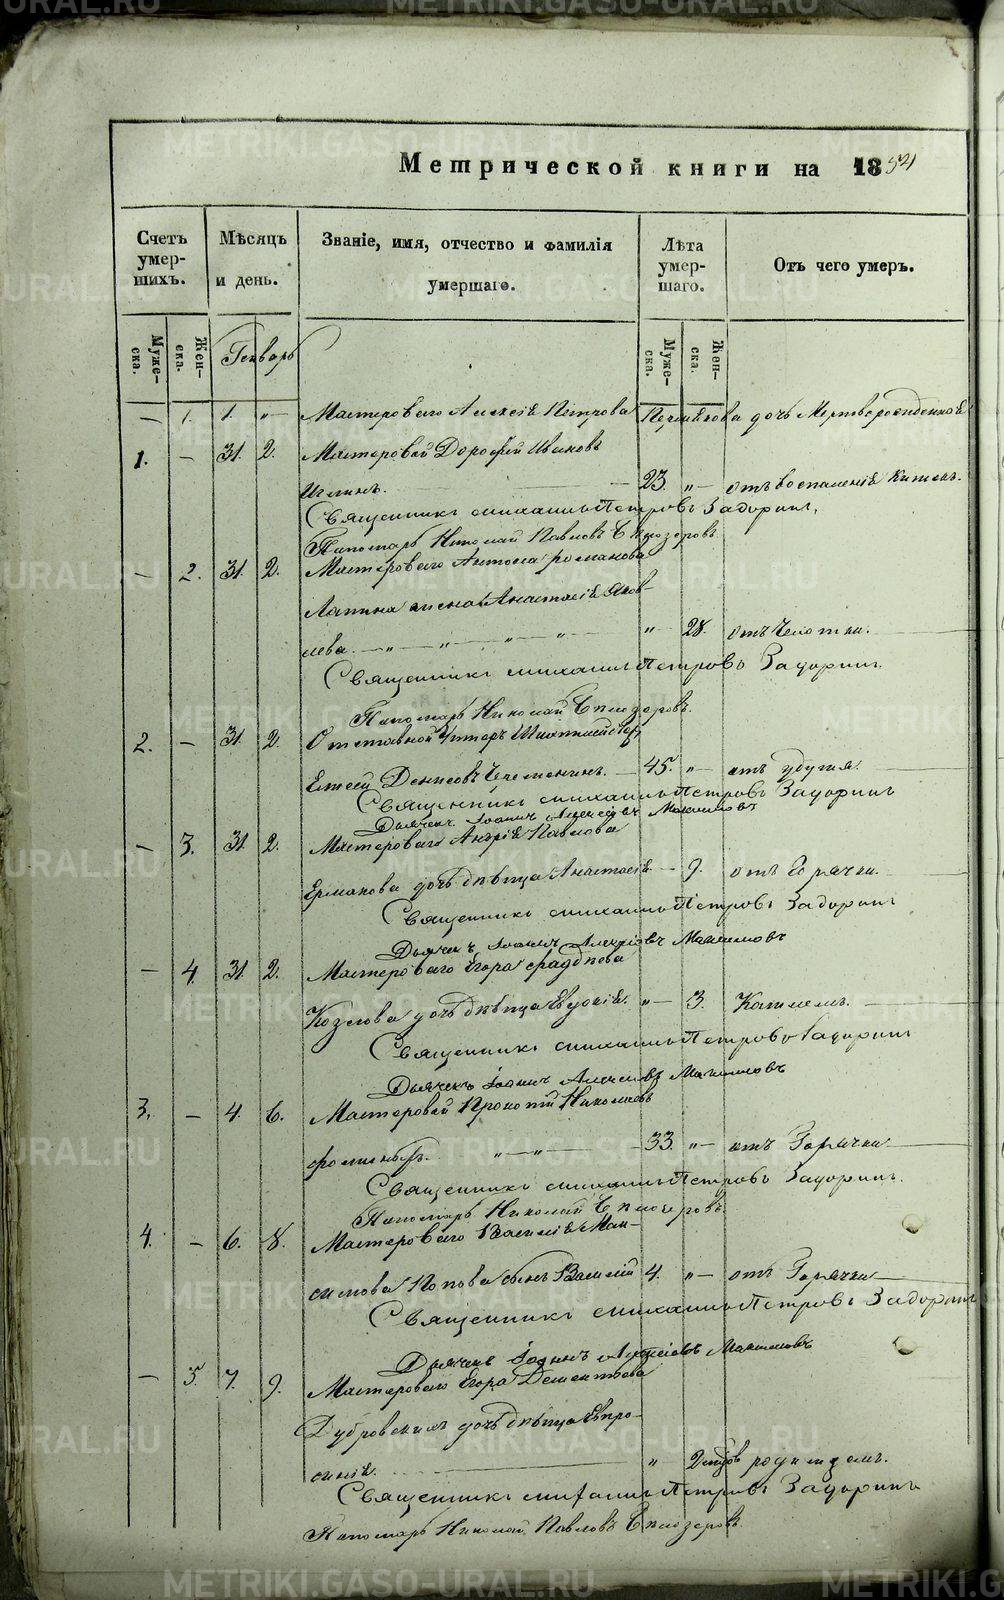 METRIKI.GASO-URAL.RU
Метрической книги на 1854
Счетъ умер- шихъ.
Мѣсяцъ и день.
Званіе, имя, отчество и фамилія умершаго.
Лѣта умер- шаго.
Отъ чего умеръ.
Муже- ска.
Жен- ска.
Генварь
Муже- ска.
Жен- ска.
— 1. 1. „— Мастероваго Алексія Петрова дочь Мертворожденная
1. — 31. 2. Мастеровой Дорофей Ивановъ
23. „— отъ воспаленія Кишекъ.
Священникъ Михаилъ Петровъ Задоринъ.
Пономарь Николай Павловъ
— 2. 31. 2. Мастероваго Антона Романова
Лапина жена Анастасія Яков-
лева. „ „ „ 28. отъ Чахотки.
Священникъ Михаилъ Петровъ Задоринъ
Пономарь Николай
2. — 31. 2. Отставной Унтеръ Шихтмейстеръ
Денисовъ 45. „— отъ удушья.
Священникъ Михаилъ Петровъ Задоринъ
Дьячекъ Іоаннъ Алексіевъ Максимовъ
— 3. 31. 2. Мастероваго Андрія Павлова
Ермакова дочь дѣвица Анастасія — 9. отъ Горячки.
Священникъ Михаилъ Петровъ Задоринъ
Дьячекъ Іоаннъ Алексіевъ Максимовъ
— 4. 31. 2. Мастероваго Егора
Козлова дочь дѣвица Евдокія. „— 3. Кашлемъ.
Священникъ Михаилъ Петровъ Задоринъ
Дьячекъ Іоаннъ Алексіевъ Максимовъ
3. — 4. 6. Мастеровой Прокопій Николаевъ
„—„— 33. „— отъ Горячки
Священникъ Михаилъ Петровъ Задоринъ.
Пономарь Николай
4. — 6. 8. Мастероваго Василія Мак-
симова Попова сынъ Василій 4. „— отъ Горячки
Священникъ Михаилъ Петровъ Задоринъ
Дьячекъ Іоаннъ Алексіевъ Максимовъ
— 5. 7. 9. Мастероваго Егора Дементьева
дочь дѣвица Евпро-
синія. „ родимцемъ.
Священникъ Михаилъ Петровъ Задоринъ
Пономарь Николай Павловъ